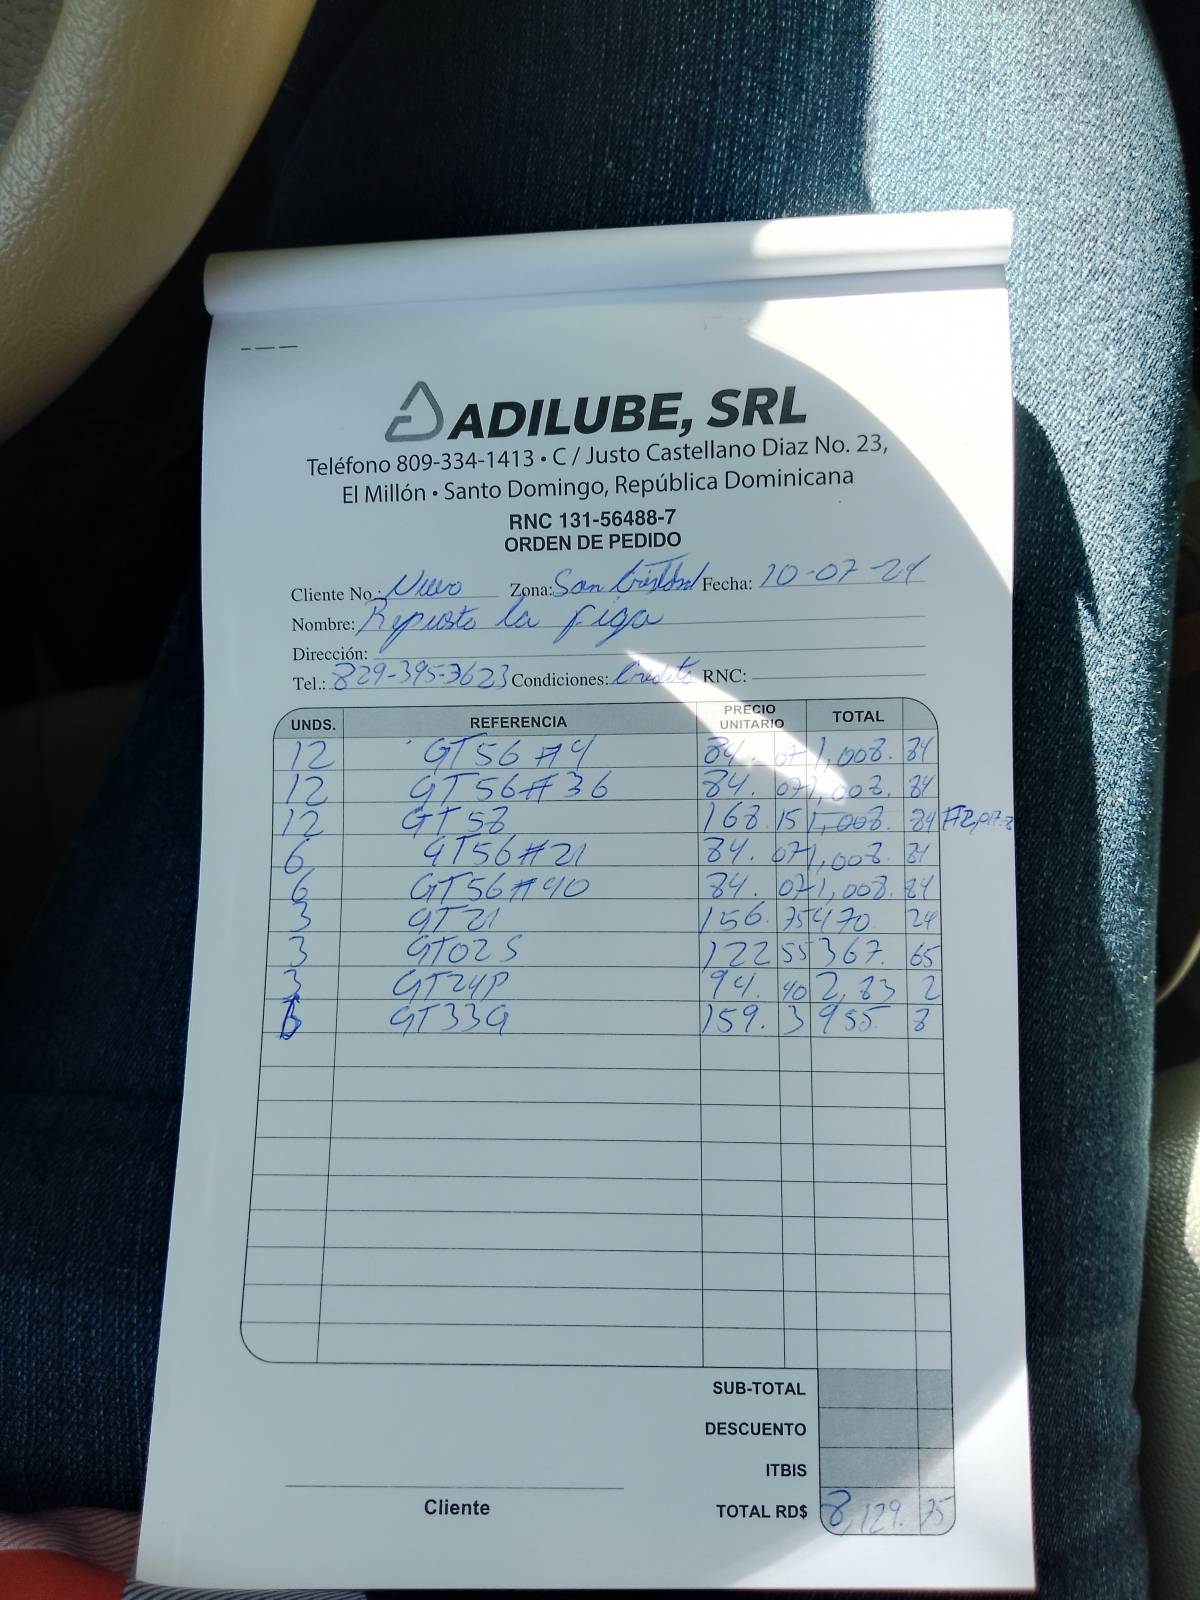 ADILUBE, SRL
Teléfono 809-334-1413 • C / Justo Castellano Diaz No. 23,
El Millón • Santo Domingo, República Dominicana
RNC 131-56488-7
ORDEN DE PEDIDO
Cliente No.: Nuevo Zona: San Cristóbal Fecha: 10-07-24
Nombre: Repuesto la figa
Dirección:
Tel.: 829-395-3623 Condiciones: Credito RNC:
UNDS. REFERENCIA PRECIO UNITARIO TOTAL
12 GT56#4 84. 07 1,008. 84
12 GT56#36 84. 07 1,008. 84
12 GT58 168 15 1,008. 84
6 GT56#21 84. 07 1,008. 84
6 GT56#40 84. 07 1,008. 84
3 GT21 156. 75 470. 24
3 GT02S 122 55 367. 65
3 GT24P 94. 40 2,83 2
6 GT33G 159. 3 955. 8
SUB-TOTAL
DESCUENTO
ITBIS
Cliente TOTAL RD$ 8,129. 75